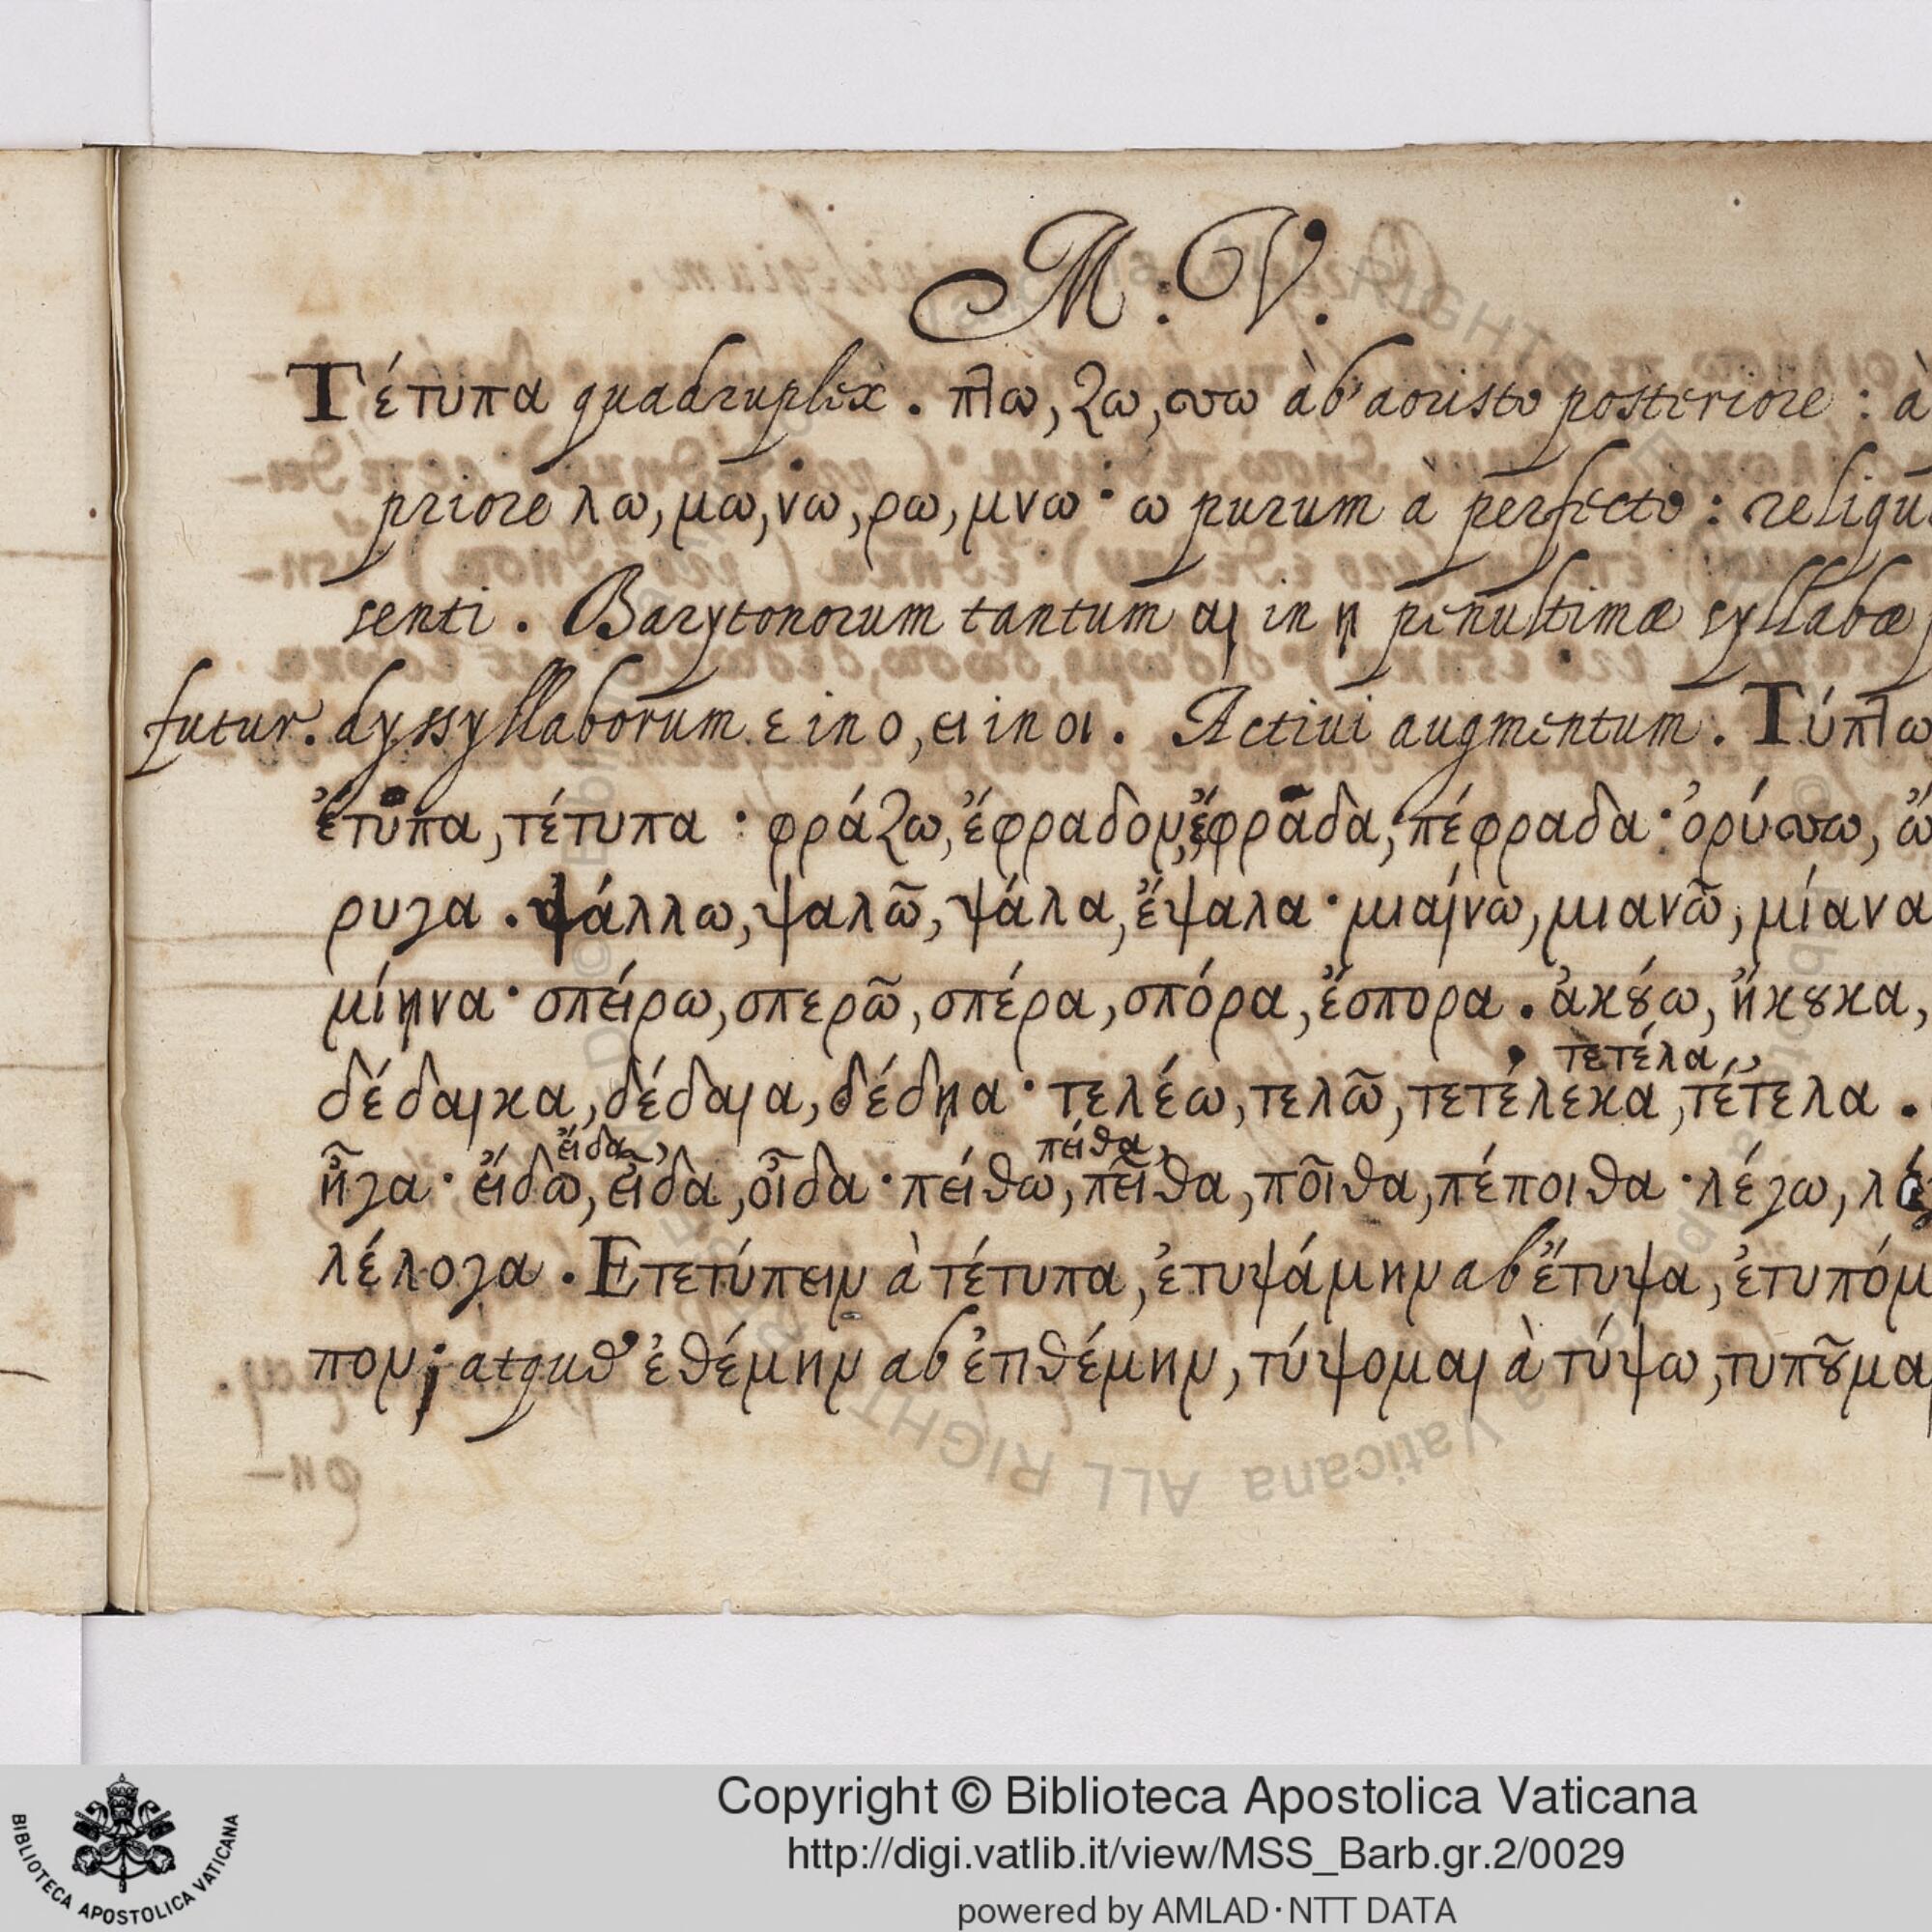 M : V.
Τέτυπα quadruplex . πτω, ζω, σσω àb aoristo posteriore : à
priore λω, μω, νω, ρω, μνω · ω purum à perfecto : reliqu
senti . Barytonorum tantum αι in η penultimæ syllabæ
futur. dyssyllaborum ε in ο, ει in οι . Actiui augmentum . Τύπτω
ἔτυπα, τέτυπα : φράζω, ἔφραδον, ἔφραδα, πέφραδα : ὀρύσσω, ὤ
ρυγα . ψάλλω, ψαλῶ, ψάλα, ἔψαλα · μιαίνω, μιανῶ, μίανα
μίηνα · σπείρω, σπερῶ, σπέρα, σπόρα, ἔσπορα . ἀκȣ́ω, ἤκȣκα,
τετέλα,
δέδαικα, δέδαια, δέδηα · τελέω, τελῶ, τετέλεκα, τέτελα .
εἴδα, πείθα,
ἦγα · εἴδω, εἶδα, οἶδα · πείθω, πεῖθα, ποῖθα, πέποιθα · λέγω,
λέλογα . Ετετύπειν à τέτυπα, ἐτυψάμην ab ἔτυψα, ἐτυπόμ
πον; atque ἐθέμην ab ἐτιθέμην, τύψομαι à τύψω, τυπȣ͂μαι
BIBLIOTECA APOSTOLICA VATICANA
Copyright © Biblioteca Apostolica Vaticana
http://digi.vatlib.it/view/MSS_Barb.gr.2/0029
powered by AMLAD·NTT DATA